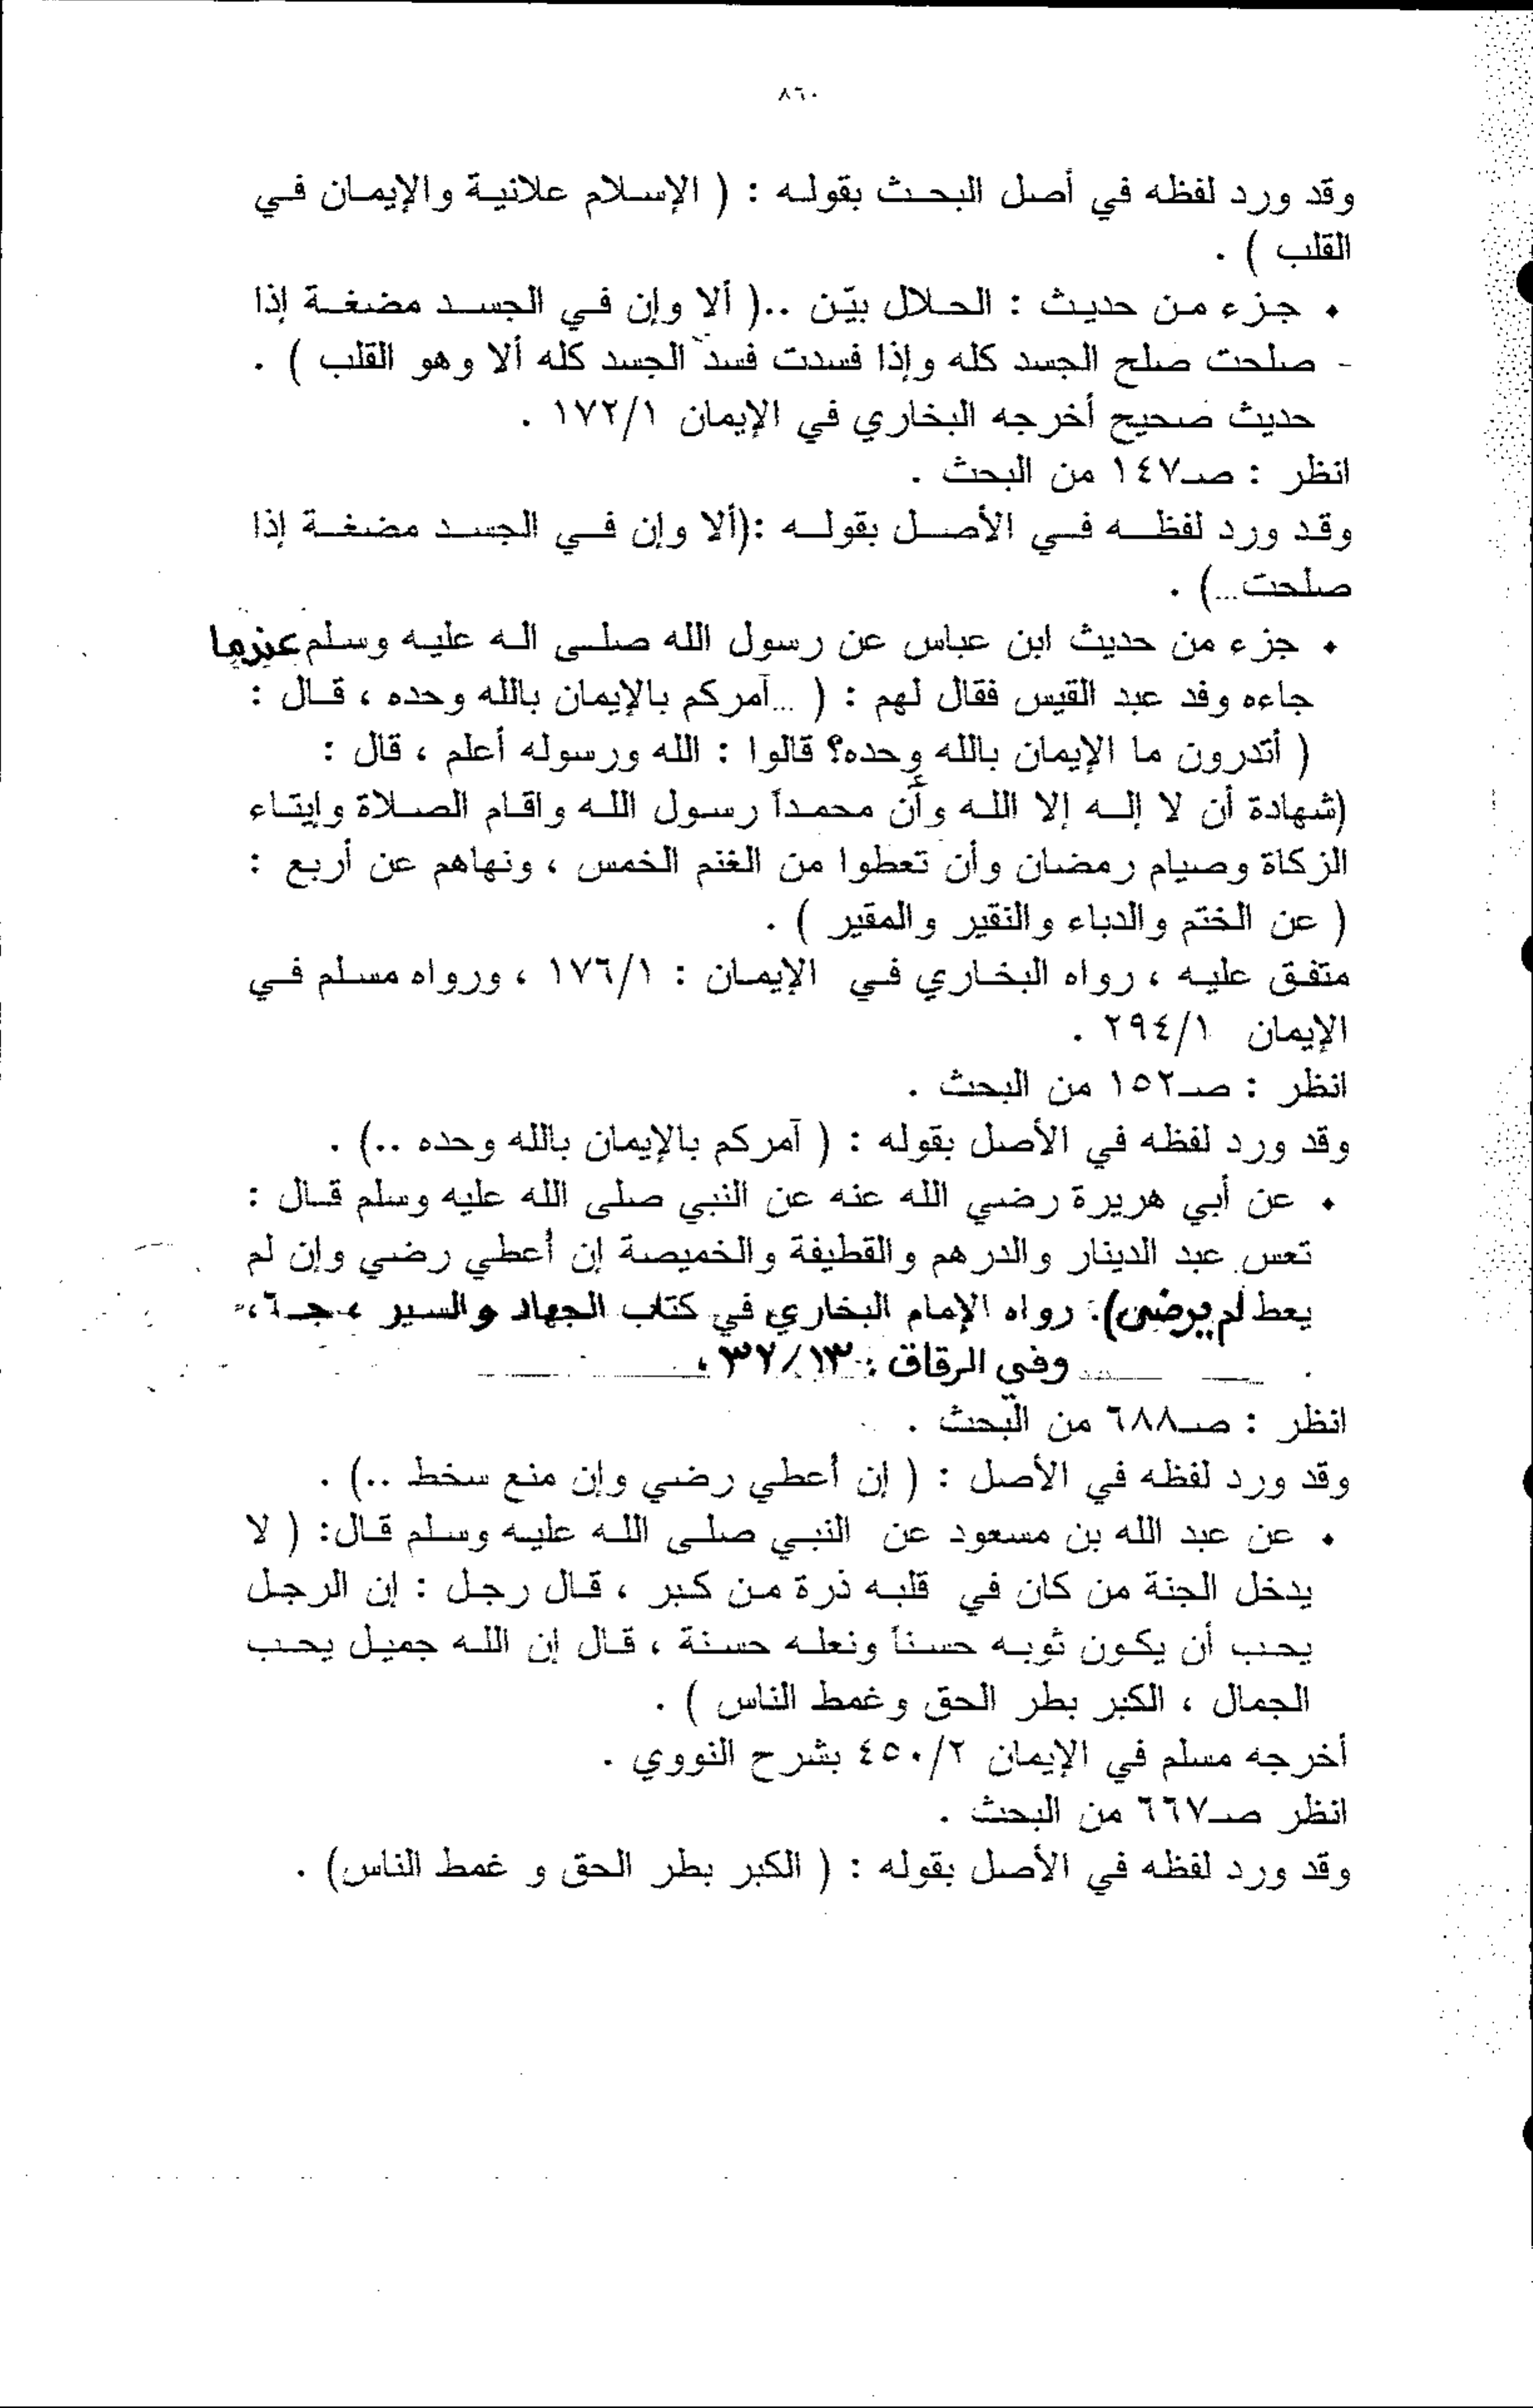 ٨٦٠
وقد ورد لفظه في أصل البحث بقوله : ( الإسلام علانية والإيمان في
القلب ) .
• جزء من حديث : الحلال بيّن ..( ألا وإن في الجسد مضغة إذا
- صلحت صلح الجسد كله وإذا فسدت فسد الجسد كله ألا وهو القلب ) .
حديث صحيح أخرجه البخاري في الإيمان ١٧٢/١ .
انظر : صـ١٤٧ من البحث .
وقد ورد لفظه في الأصل بقوله :(ألا وإن في الجسد مضغة إذا
صلحت...) .
• جزء من حديث ابن عباس عن رسول الله صلى اله عليه وسلم عندما
جاءه وفد عبد القيس فقال لهم : ( ...آمركم بالإيمان بالله وحده ، قال :
( أتدرون ما الإيمان بالله وحده؟ قالوا : الله ورسوله أعلم ، قال :
(شهادة أن لا إله إلا الله وأن محمداً رسول الله واقام الصلاة وإيتاء
الزكاة وصيام رمضان وأن تعطوا من الغنم الخمس ، ونهاهم عن أربع :
( عن الختم والدباء والنقير والمقير ) .
متفق عليه ، رواه البخاري في الإيمان : ١٧٦/١ ، ورواه مسلم في
الإيمان ٢٩٤/١ .
انظر : صـ١٥٢ من البحث .
وقد ورد لفظه في الأصل بقوله : ( آمركم بالإيمان بالله وحده ..) .
• عن أبي هريرة رضي الله عنه عن النبي صلى الله عليه وسلم قال :
تعس عبد الدينار والدرهم والقطيفة والخميصة إن أعطي رضي وإن لم
يعط لم يرضى). رواه الإمام البخاري في كتاب الجهاد والسير ، جـ٦،
وفي الرقاق : ٣٧/١٣ .
انظر : صـ٦٨٨ من البحث .
وقد ورد لفظه في الأصل : ( إن أعطي رضي وإن منع سخط ..) .
• عن عبد الله بن مسعود عن النبي صلى الله عليه وسلم قال: ( لا
يدخل الجنة من كان في قلبه ذرة من كبر ، قال رجل : إن الرجل
يحب أن يكون ثوبه حسناً ونعله حسنة ، قال إن الله جميل يحب
الجمال ، الكبر بطر الحق وغمط الناس ) .
أخرجه مسلم في الإيمان ٤٥٠/٢ بشرح النووي .
انظر صـ٦٦٧ من البحث .
وقد ورد لفظه في الأصل بقوله : ( الكبر بطر الحق و غمط الناس) .